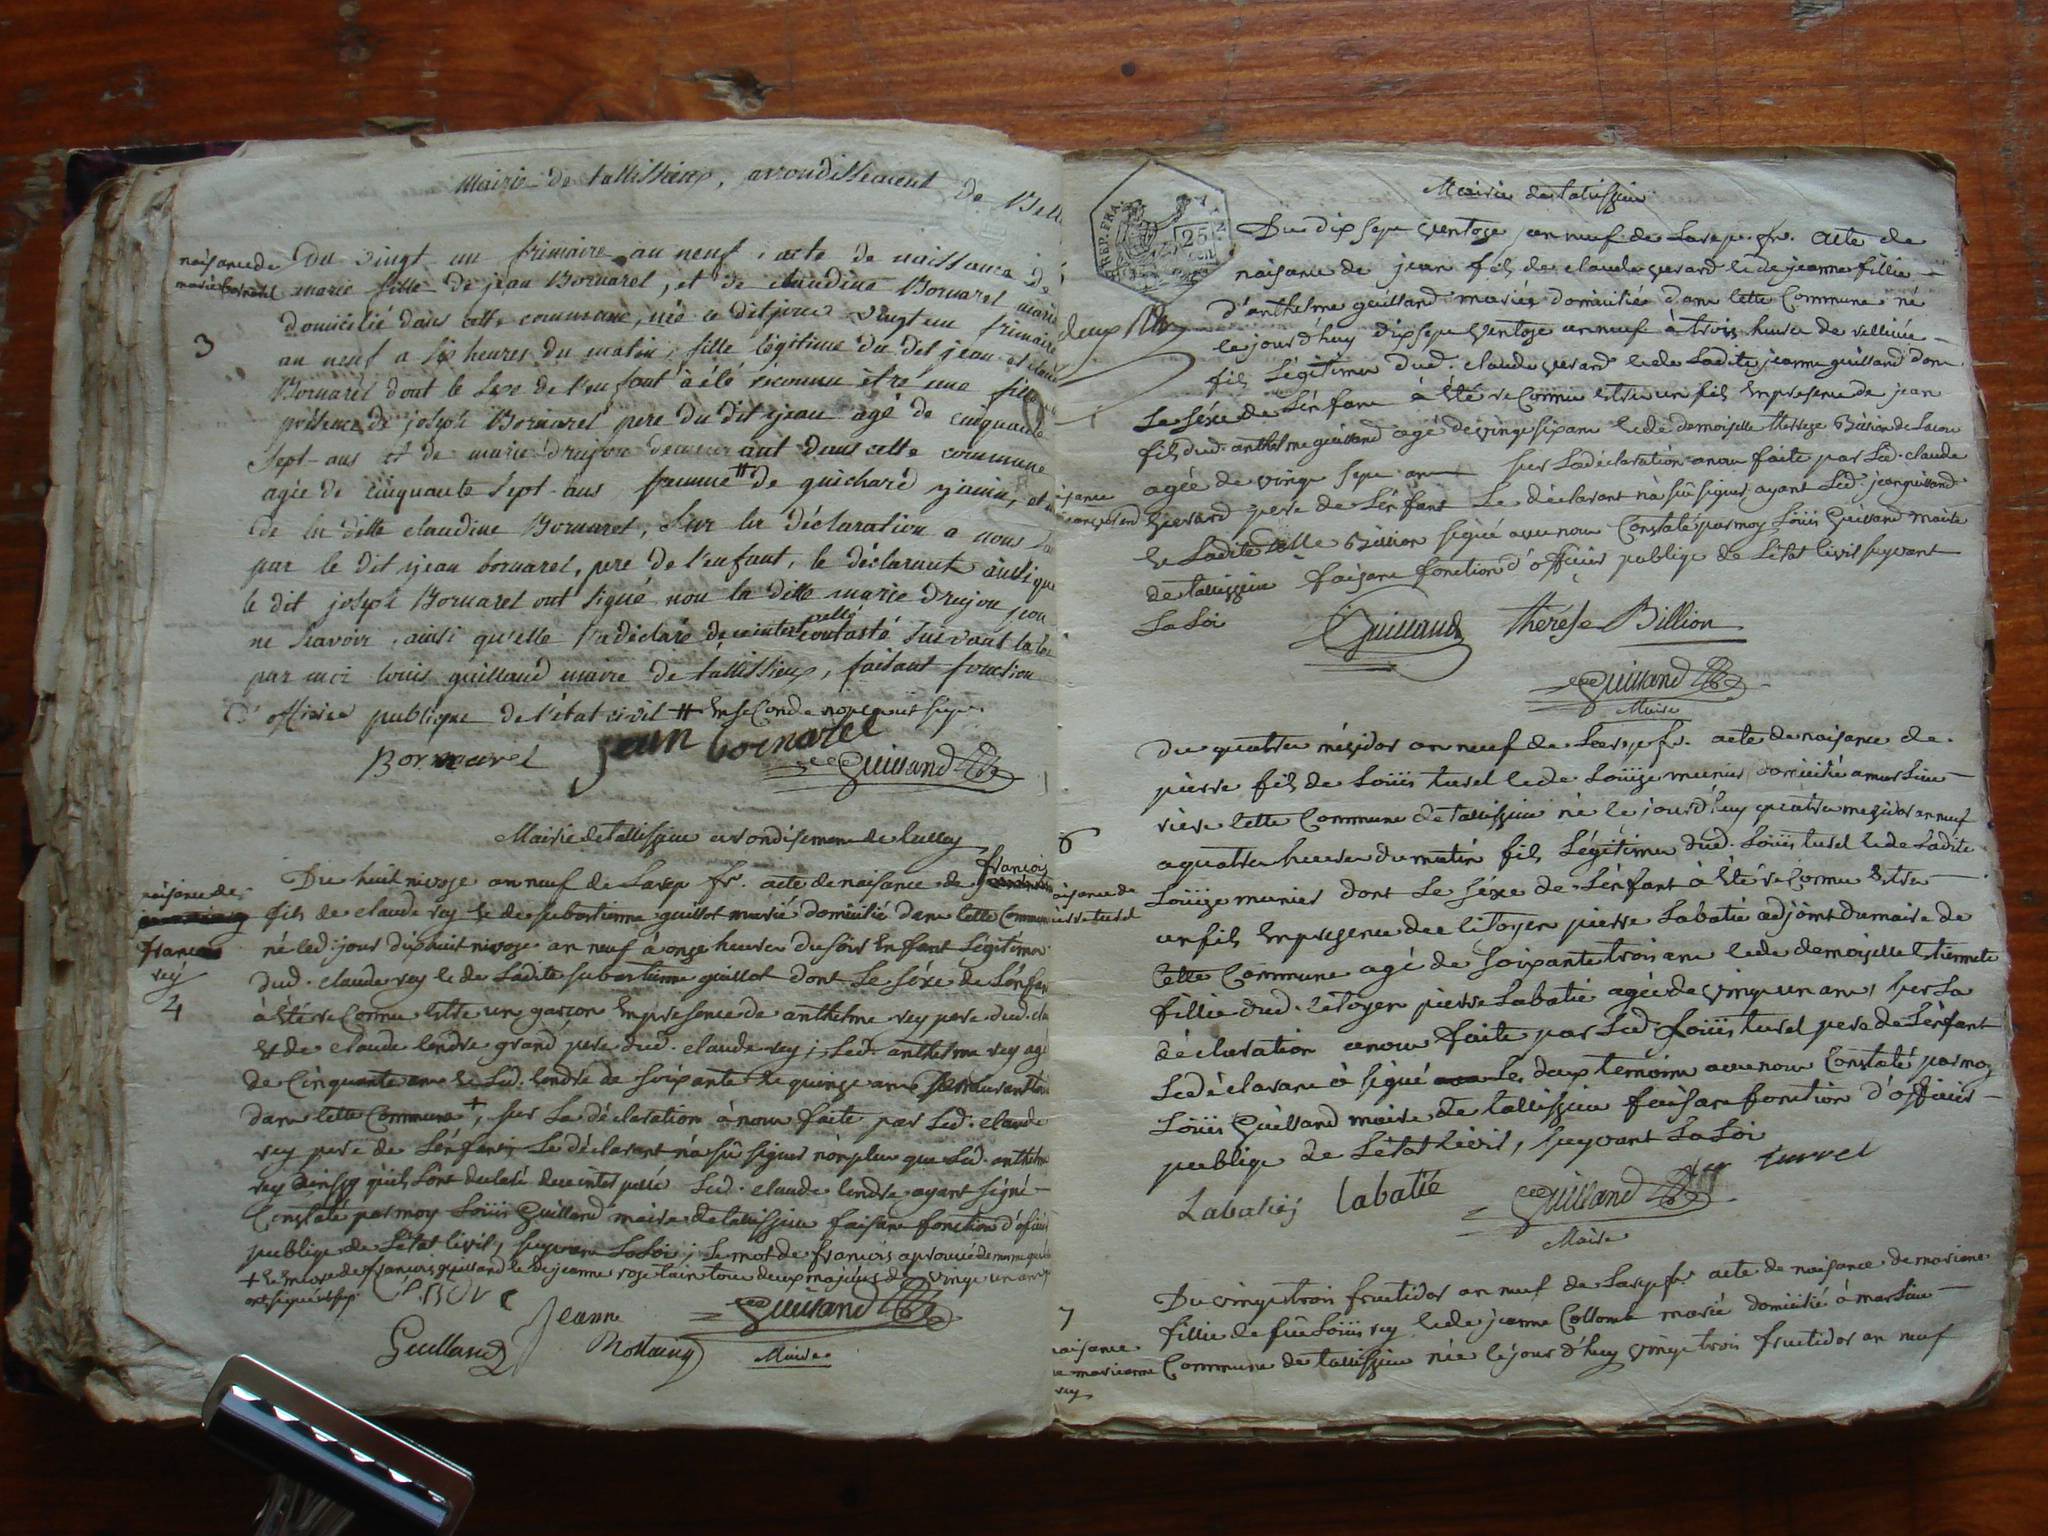 Mairie de tallissieux, arrondissement de Bell
naisance de
marie bornarel
3
Du vingt un frimaire an neuf, acte de naissance de
marie fille de jean Bornarel, et de claudine Bornarel marié
domicilié dans cette commune, née ce dit jour vingt un frimaire
an neuf a six heures du matin, fille légitime du dit jean et claud
Bornarel dont le sexe de l'enfant à été réconnu être une fille
présence de joseph Bornarel pere du dit jean agé de cinquante
sept ans et de marie drujon demeurant dans cette commune
agée de cinquante sept ans femme # de guichard janin, et
de la ditte claudine Bornarel, sur la déclaration a nous
par le dit jean bornarel, pere de l'enfant, le déclarant ainsi que
le dit joseph Bornarel ont signé non la ditte marie drujon pour
ne scavoir, ainsi qu'elle l'a déclaré de ce inter pellé constaté suivant la loi
par moi louis guilland maire de tallissieux, faisant fonction
d'officier publique de l'état civil # en seconde nopce
Bornarel jean bornarel Guilland
Mairie de tallissieu arondisement de belley
naisance de
françois
rey
4
Du huit nivose an neuf de la rep fr. acte de naisance de françois
fils de claude rey et de sebastienne guillot marié domicilié dans cette commune
né led. jour dixhuit nivose an neuf à onze heures du soir enfant légitime
dud. claude rey et de ladite sebastienne guillot dont le séxe de l'énfan
à été reconnu estre un garçon en presence de anthelme rey pere dud. cla
et de claude lendre grand pere dud. claude rey; led. anthelme rey agé
de cinquante ans et led. lendre de soixante et quinze ans demeurant tous
dans cette commune +, sur la déclaration à nous faite par led. claude
rey pere de l'énfant; le déclarant n'a sû signer non plus que led. anthelme
rey ainsy qu'ils l'ont declaré de ce inter pellé led. claude lendre ayant signé
constaté par moy Loüis Guilland maire de tallissieu faisant fonction d'officier
publique de l'état civil, suyvant la loi; le mot de françois aprouvé
+ en presence de françois guilland et de jeanne rostain tous deux majeurs de vingt un ans
ont signé
Guilland Jeanne Rostaing Guilland
Maire
REP. FRA.
25
cen
Mairie de tallissieu
deux
Du dix sept ventose an neuf de la rep. fr. acte de
naisance de jean fils de claude gerard et de jeanne fillie
d'anthelme guilland mariés domiciliés dans cette commune né
le jourd'huy dix sept ventose an neuf à trois heures de relevée
fils légitime dud. claude gerard et de ladite jeanne guilland dont
le séxe de l'énfant à été reconnu estre un fils en presence de jean
fils dud. anthelme guilland agé de vingt six ans et de demoiselle therese Billion
agée de vingt sept ans sur la déclaration a nous faite par led. claude
gerard pere de l'énfant le déclarant n'a sû signer, ayant led. jean guilland
et ladite dlle Billion signé avec nous constaté par moy Loüis Guilland maire
de tallissieu faisant fonction d'officier publique de l'état civil suyvant
la loi
Guilland thérèse Billion
Guilland
Maire
6
naisance de
pierre turel
Du quatre mésidor an neuf de la rep fr. acte de naisance de
pierre fils de Loüis turel et de Loüize munier domicilié a marsieu
riere cette commune de tallissieu né le jourd'huy quatre mesidor an neuf
a quatre heures du matin fils légitime dud. Loüis turel et de ladite
Loüize munier dont le séxe de l'énfant à été reconnu estre
un fils en presence de citoyen pierre Labatie adjoint du maire de
cette commune agé de soixante trois ans et de demoiselle Etiennete
fillie dud. citoyen pierre Labatie agée de vingt un ans, sur la
déclaration a nous faite par led. Loüis turel pere de l'énfant
le déclarant à signé les deux temoins avec nous constaté par moy
Loüis Guilland maire de tallissieu faisant fonction d'officier
publique de l'état civil, suyvant la loi
Labatie Labatié Guilland turrel
Maire
7
naisance
de marianne
rey
Du vingt trois fructidor an neuf de la rep fr. acte de naisance de marianne
fillie de feu Loüis rey et de jeanne Collomb marié domicilié à marsieu
commune de tallissieu née le jourd'huy vingt trois fructidor an neuf